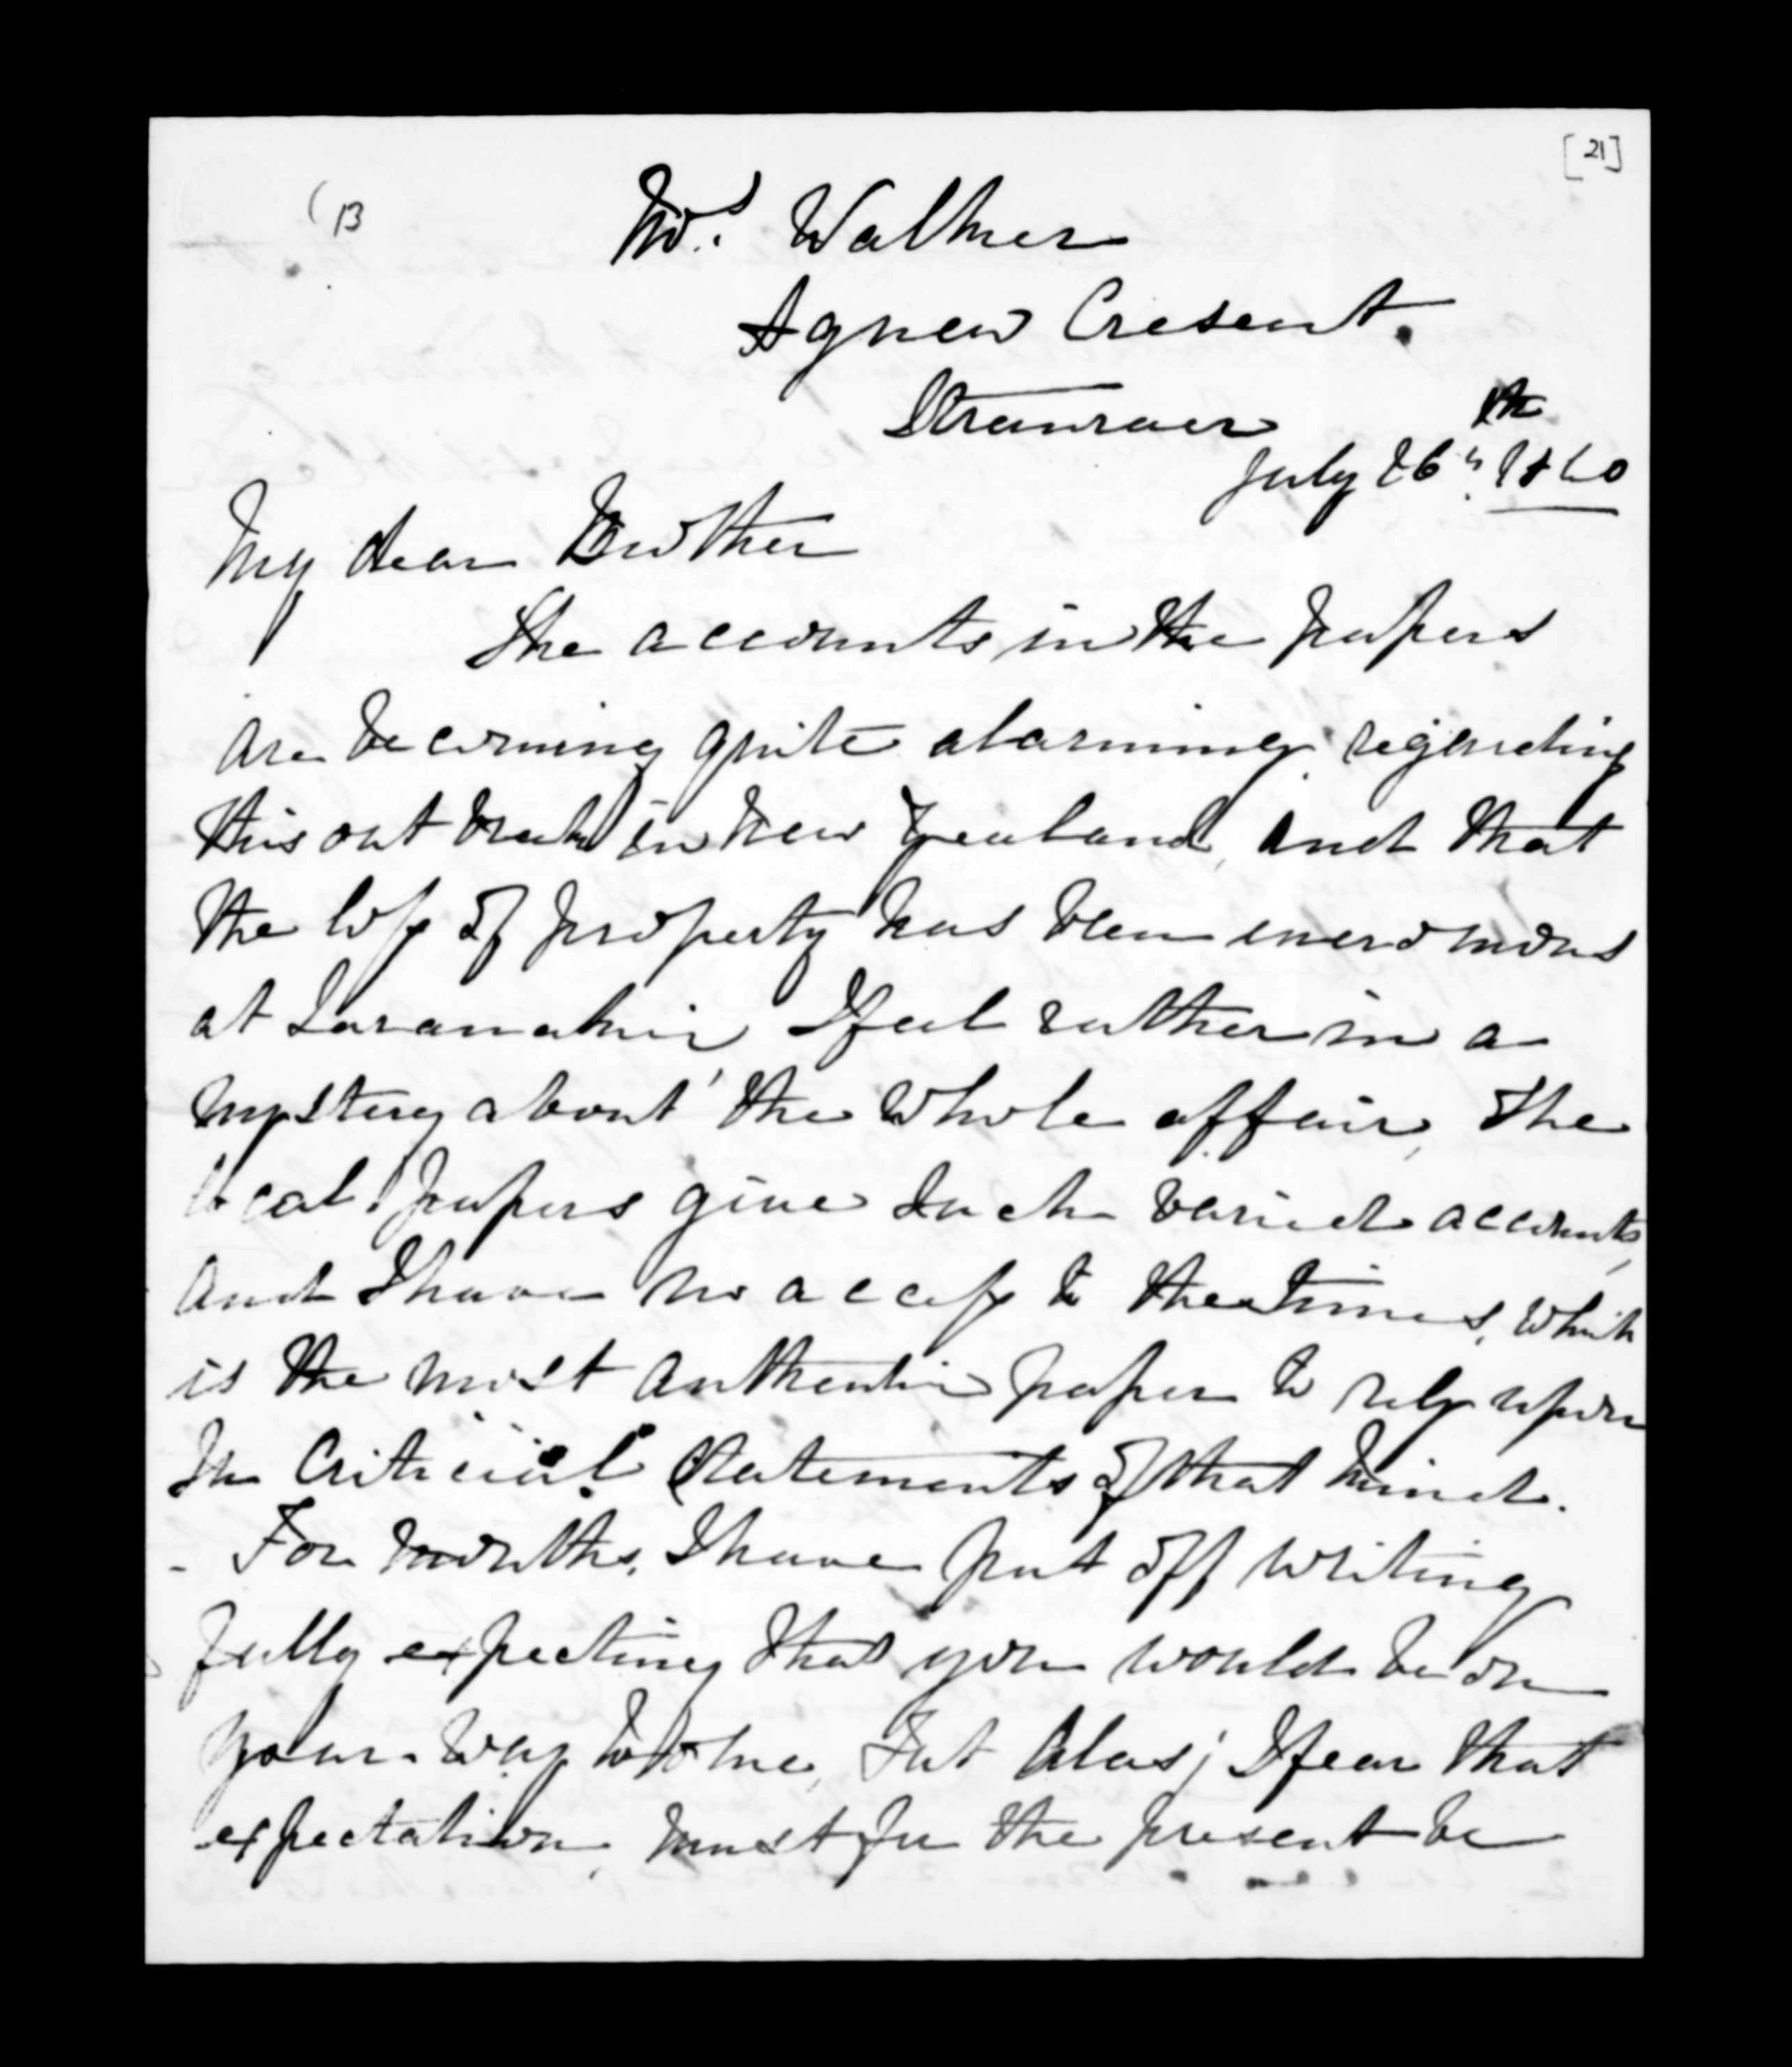 [21]
(13
Mrs. Walker
Agnew Cresent.
Stranraer
July 26th. 1860
My dear Brother
The accounts in the papers
are becoming quite alarming, regarding
this out break in New Zealand, and that
the loss of property has been enoromous
at Taranakie I feel rather in a
mystery about the whole affair, the
local papers give such varied accounts,
and I have no access to the times, which
is the most authentic paper to rely upon
In Criticial Statements of that kind.
- For months, I have put off writing
fully expecting that you would be on
your way home, but alas; I fear that
expectation, must for the present be